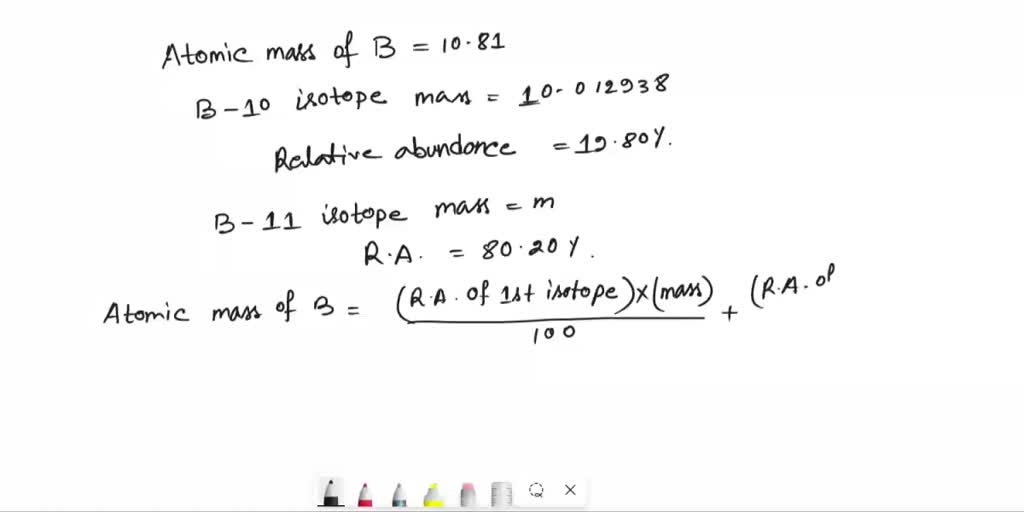 Atomic mass of B = 10.81
B-10 isotope mass = 10.012938
Relative abundance = 19.80%.
B-11 isotope mass = m
R.A. = 80.20%.
Atomic mass of B = (R.A. of 1st isotope)×(mass) + (R.A. of
100